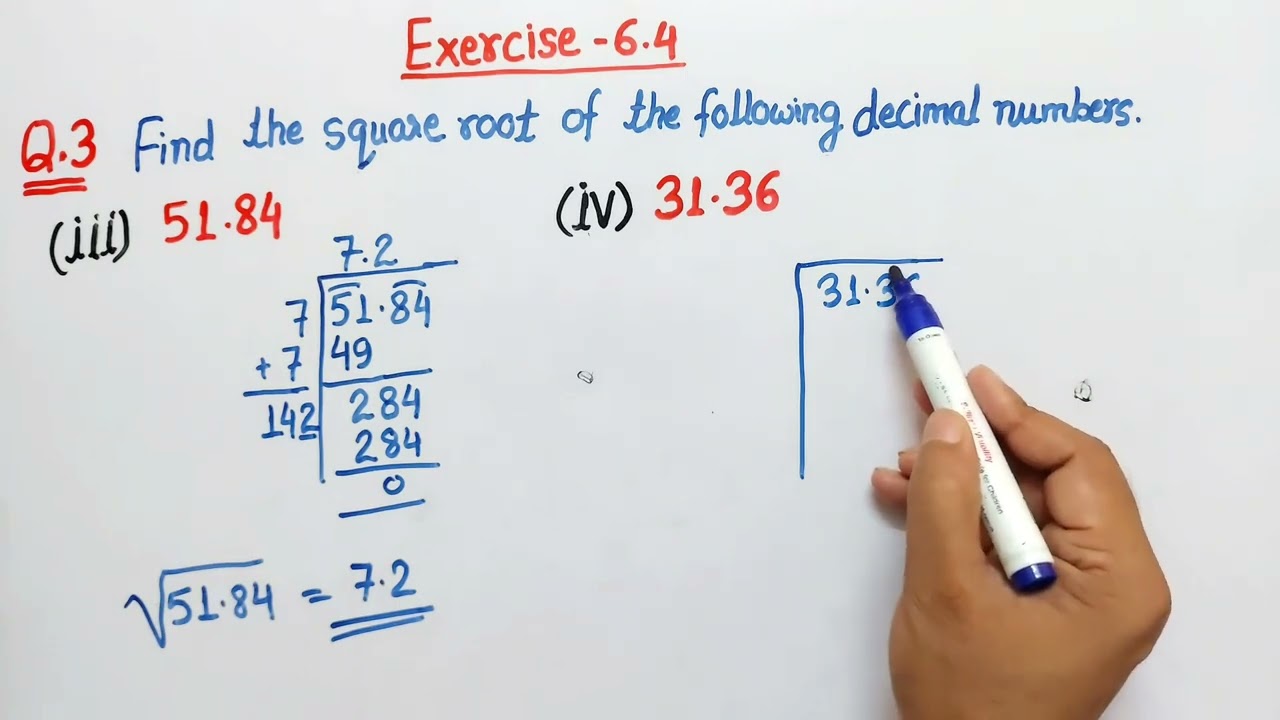 Exercise-6.4
Q.3 Find the square root of the following decimal numbers.
(iii) 51.84
7.2
7 51.84
+7 49
142 284
284
0
√51.84 = 7.2
(iv) 31.36
31.3